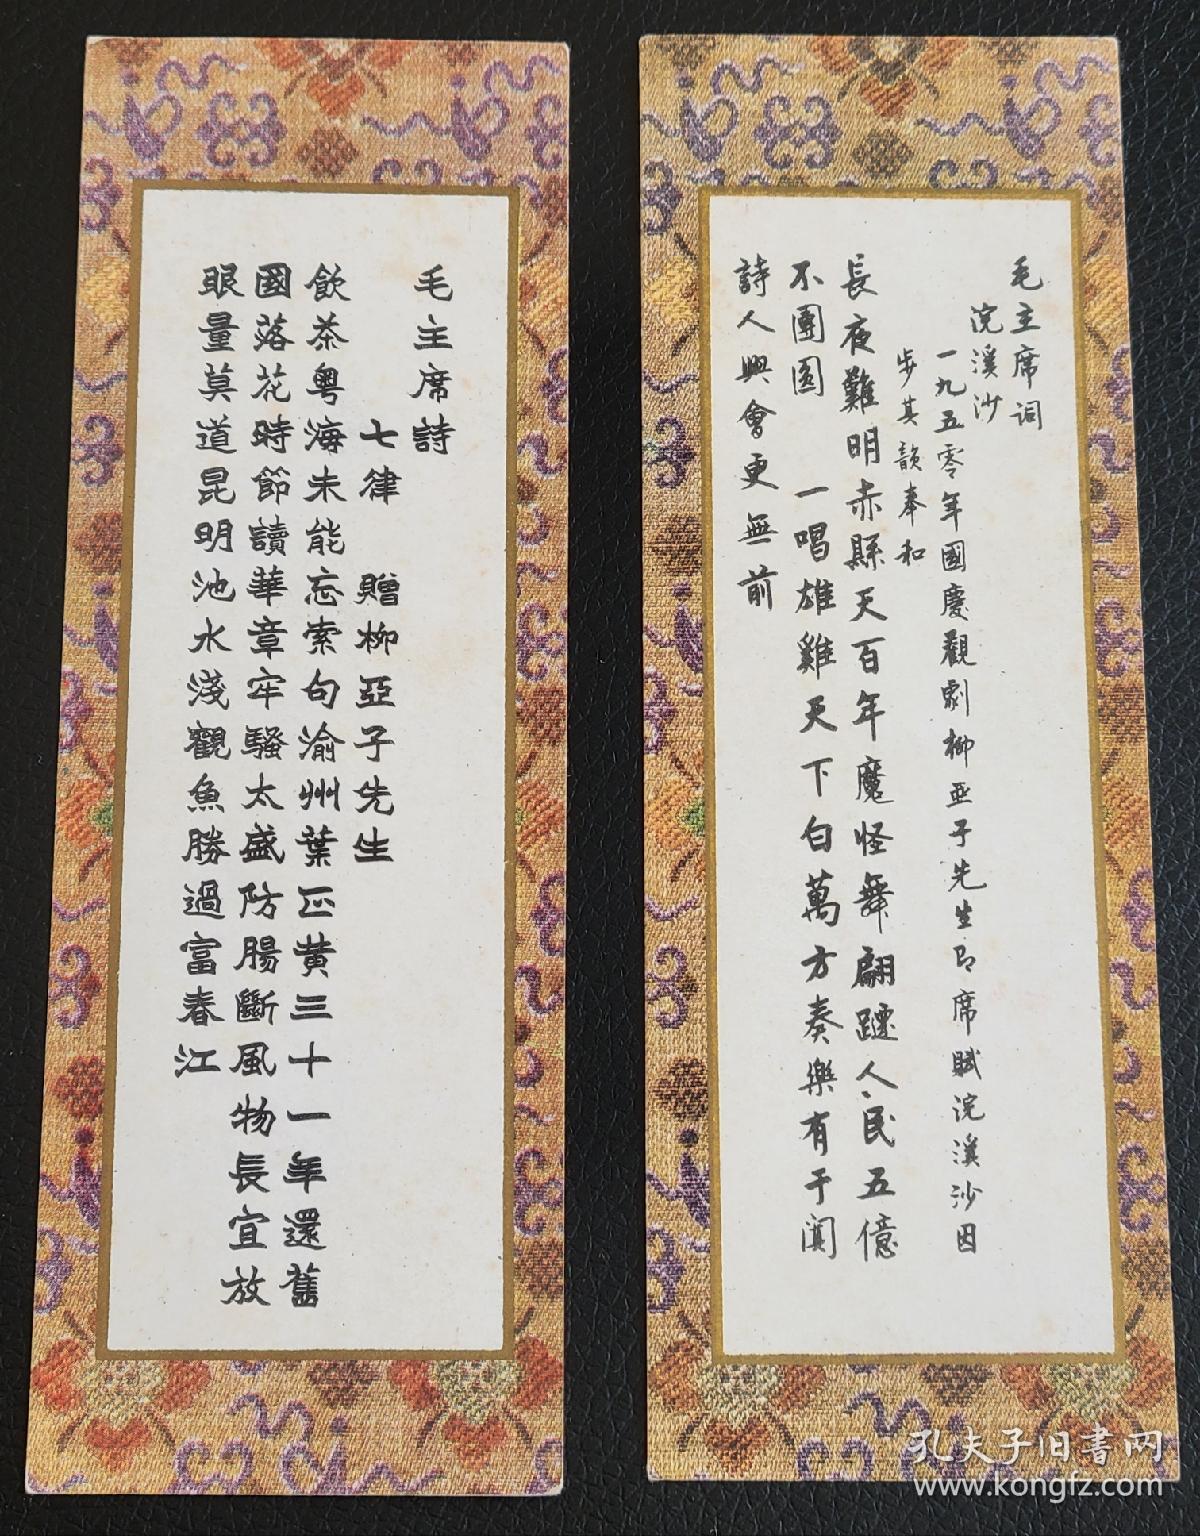 毛主席詩
七律　贈柳亞子先生
飲茶粤海未能忘索句渝州葉正黄三十一年還舊
國落花時節讀華章牢騷太盛防腸斷風物長宜放
眼量莫道昆明池水淺觀魚勝過富春江
毛主席词
浣溪沙
一九五零年國慶觀劇柳亚子先生即席賦浣溪沙因
步其韻奉和
長夜難明赤縣天百年魔怪舞翩躚人民五億
不團圆　一唱雄雞天下白萬方奏樂有于阗
詩人興會更無前
孔夫子旧書网
www.kongfz.com